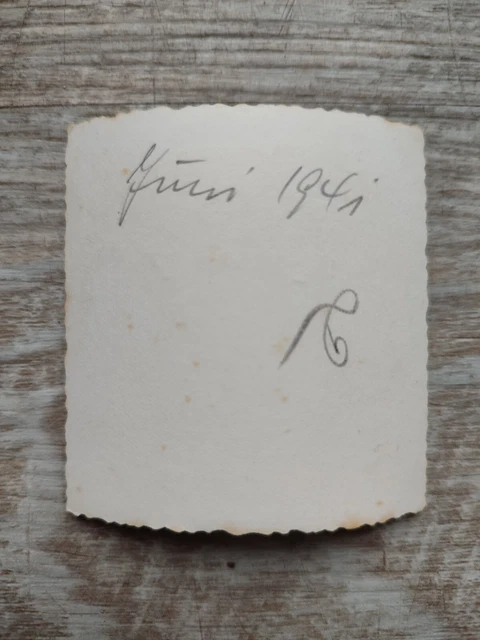 Juni 1941